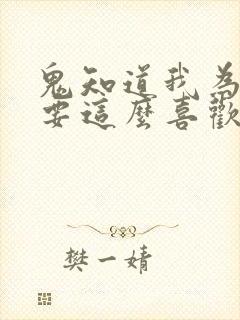 鬼知道我為
要這麼喜歡
樊一婧